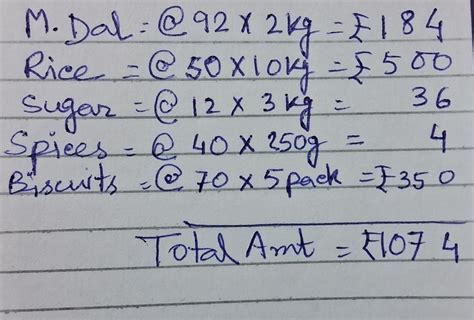 M. Dal = @ 92 x 2kg = ₹184
Rice = @ 50 x 10kg = ₹500
Sugar = @ 12 x 3kg = 36
Spices = @ 40 x 250g = 4
Biscuits = @ 70 x 5pack = ₹350
Total Amt = ₹1074